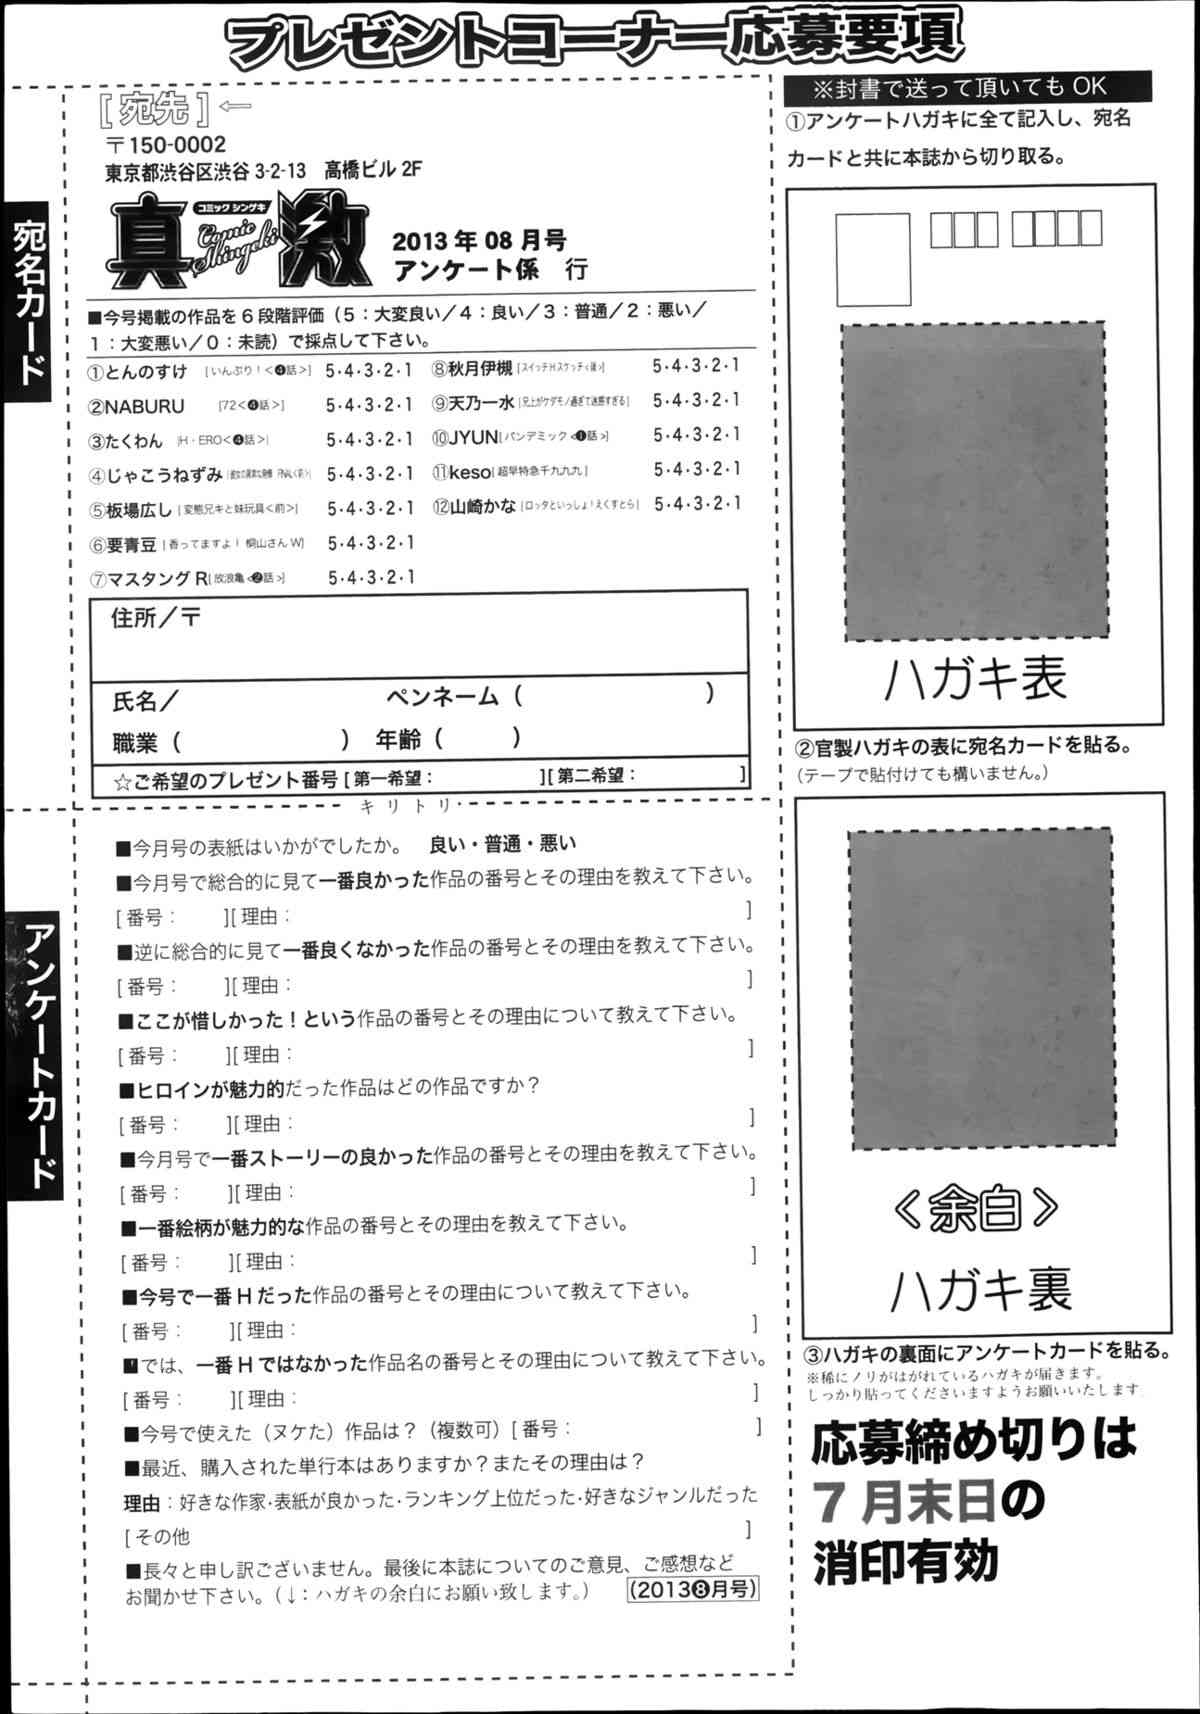 プレゼントコーナー応募要項
宛名カード
[ 宛先 ] ←
〒150-0002
東京都渋谷区渋谷 3-2-13　高橋ビル 2F
真激
コミック シンゲキ
Comic Shingeki
2013 年 08 月号
アンケート係　行
■今号掲載の作品を 6 段階評価（5：大変良い／4：良い／3：普通／2：悪い／
1：大変悪い／0：未読）で採点して下さい。
①とんのすけ　[いんぷり！<❹話>]　5・4・3・2・1
②NABURU　[72<❹話>]　5・4・3・2・1
③たくわん　[H・ERO<❹話>]　5・4・3・2・1
④じゃこうねずみ　5・4・3・2・1
⑤板場広し　[変態兄キと妹玩具<前>]　5・4・3・2・1
⑥要青豆　[香ってますよ！ 桐山さん W]　5・4・3・2・1
⑦マスタング R[放浪亀<❷話>]　5・4・3・2・1
⑧秋月伊槻　[スイッチHスケッチ<後>]　5・4・3・2・1
⑨天乃一水　[兄上がケダモノ過ぎて迷惑すぎる]　5・4・3・2・1
⑩JYUN[パンデミック<❶話>]　5・4・3・2・1
⑪keso[超早特急千九九九]　5・4・3・2・1
⑫山崎かな [ロッタといっしょ！えくすとら]　5・4・3・2・1
住所／〒
氏名／　ペンネーム（　）
職業（　）　年齢（　）
☆ご希望のプレゼント番号 [ 第一希望：　][ 第二希望：　]
キリトリ
アンケートカード
■今月号の表紙はいかがでしたか。　良い・普通・悪い
■今月号で総合的に見て一番良かった作品の番号とその理由を教えて下さい。
[ 番号：　][ 理由：　]
■逆に総合的に見て一番良くなかった作品の番号とその理由を教えて下さい。
[ 番号：　][ 理由：　]
■ここが惜しかった！という作品の番号とその理由について教えて下さい。
[ 番号：　][ 理由：　]
■ヒロインが魅力的だった作品はどの作品ですか？
[ 番号：　][ 理由：　]
■今月号で一番ストーリーの良かった作品の番号とその理由を教えて下さい。
[ 番号：　][ 理由：　]
■一番絵柄が魅力的な作品の番号とその理由を教えて下さい。
[ 番号：　][ 理由：　]
■今号で一番 H だった作品の番号とその理由について教えて下さい。
[ 番号：　][ 理由：　]
■では、一番 H ではなかった作品名の番号とその理由について教えて下さい。
[ 番号：　][ 理由：　]
■今号で使えた（ヌケた）作品は？（複数可）[ 番号：　]
■最近、購入された単行本はありますか？またその理由は？
理由：好きな作家・表紙が良かった・ランキング上位だった・好きなジャンルだった
[ その他　]
■長々と申し訳ございません。最後に本誌についてのご意見、ご感想など
お聞かせ下さい。（↓：ハガキの余白にお願い致します。）　(2013❽月号)
※封書で送って頂いても OK
①アンケートハガキに全て記入し、宛名
カードと共に本誌から切り取る。
ハガキ表
②官製ハガキの表に宛名カードを貼る。
（テープで貼付けても構いません。）
＜余白＞
ハガキ裏
③ハガキの裏面にアンケートカードを貼る。
※稀にノリがはがれているハガキが届きます。
しっかり貼ってくださいますようお願いいたします。
応募締め切りは
7 月末日の
消印有効